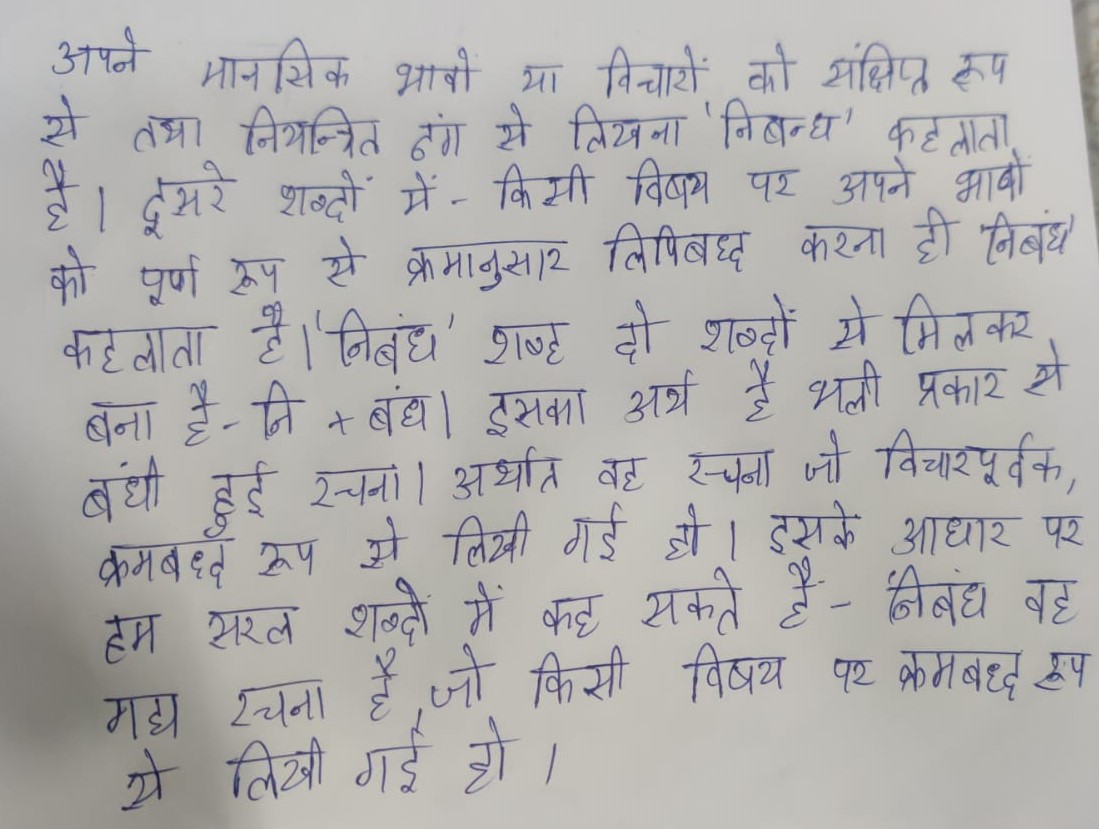 अपने मानसिक भावों या विचारों को संक्षिप्त रूप
से तथा नियन्त्रित ढंग से लिखना 'निबन्ध' कहलाता
है। दूसरे शब्दों में - किसी विषय पर अपने भावों
को पूर्ण रूप से क्रमानुसार लिपिबद्ध करना ही 'निबंध'
कहलाता है। 'निबंध' शब्द दो शब्दों से मिलकर
बना है - नि + बंध। इसका अर्थ है भली प्रकार से
बंधी हुई रचना। अर्थात वह रचना जो विचारपूर्वक,
क्रमबद्ध रूप से लिखी गई हो। इसके आधार पर
हम सरल शब्दों में कह सकते है - निबंध वह
गद्य रचना है, जो किसी विषय पर क्रमबद्ध रूप
से लिखी गई हो।